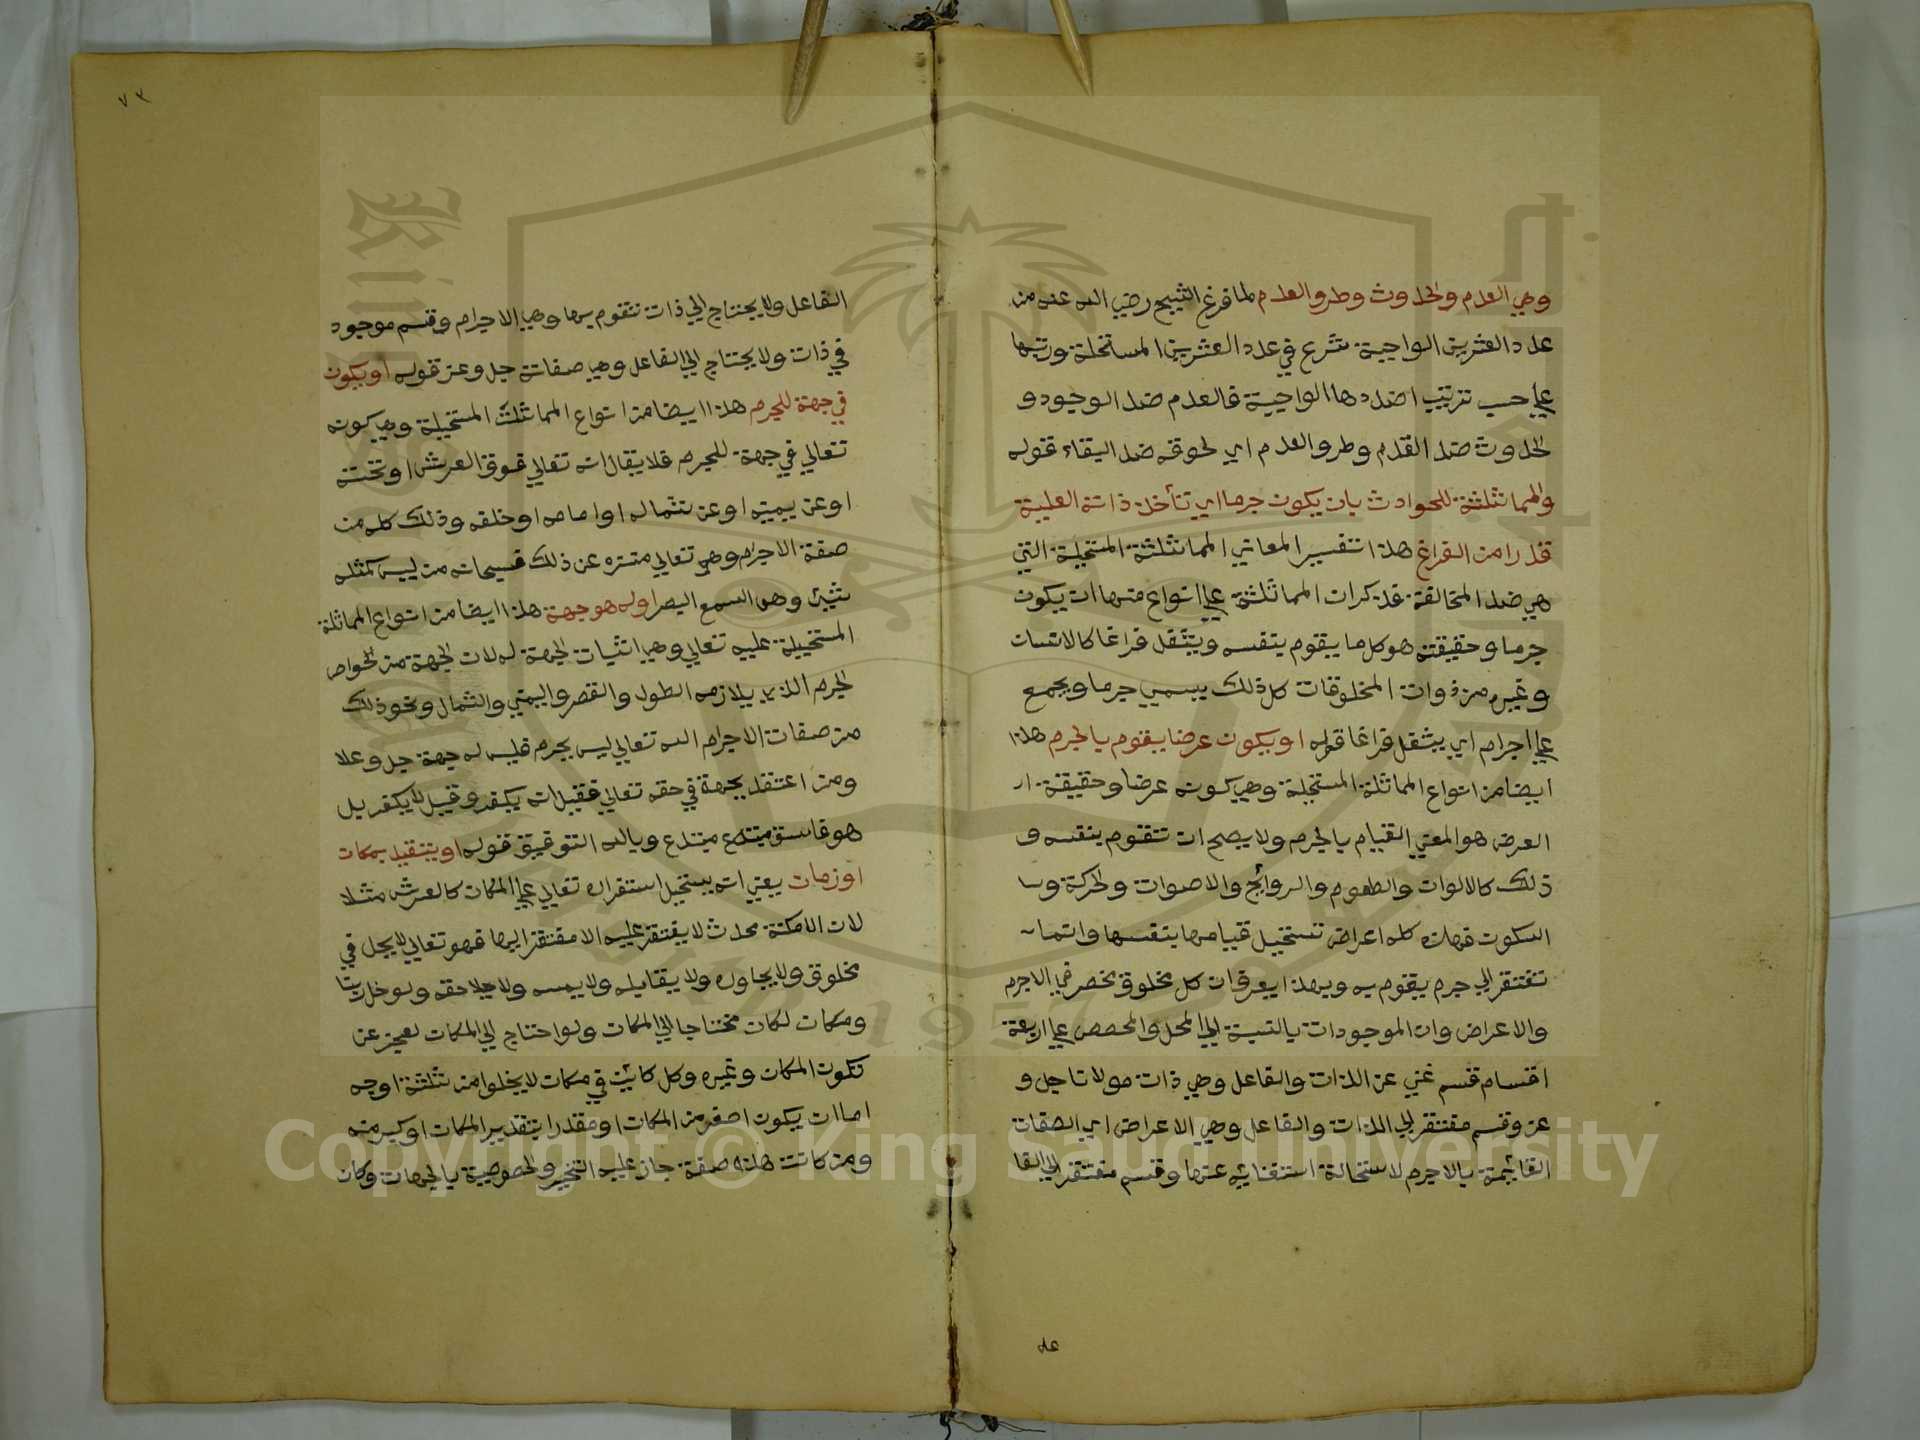 وهي العدم والحدوث وطرو العدم لما فرغ الشيخ رضي الله عنه من
عدد العشرين الواجبة شرع في عدد العشرين المستحلة ورتبها
علي حسب ترتيب اضددها الواجبة فالعدم ضد الوجود و
الحدوث ضد القدم وطرو العدم اي لحوقه ضد البقاء قوله
والمماثلثة للحوادث بان يكون جرما اي تأخذ ذاته العلية
قدرا من الفراغ هذا تفسير المعاني المماثلثة المستحيلة التي
هي ضد المخالفة قد كرات المماثلثة علي انواع منها ان يكون
جرما وحقيقته هو كل ما يقوم بنفسه ويشغل فراغا كالانسان
وغيره من ذوات المخلوقات كل ذلك يسمي جرما ويجمع
علي اجرام اي يشغل فراغا قوله او يكون عرضا يقوم بالجرم هذا
ايضا من انواع المماثلة المستحلة وهي كونه عرضا وحقيقة
العرض هو المعني القيام بالجرم ولا يصح ان تقوم بنفسه و
ذلك كالالوان والطعوم والروائح والاصوات والحركة و
السكون فهذه كله اعراض تستحيل قيامها بنفسها وانما
تفتقر الي جرم يقوم به وبهذا يعرف ان كل مخلوق نحصر في الاجرم
والاعراض وان الموجودات بالنسبة الي المحل والمخصص علي اربعة
اقسام قسم غني عن الذات والفاعل وهي ذات مولانا جل و
عز وقسم مفتقر الي الذات والفاعل وهي الاعراض اي الصفات
القائمة بالاجرم لاستحالة استغنائه عنها وقسم مفتقر الي الفا
عل
٧٣
الفاعل ولا يحتاج الي ذات تقوم بها وهي الاجرام وقسم موجود
في ذات ولا يحتاج الي الفاعل وهي صفاته جل وعز قوله او يكون
في جهة للجرم هذا ايضا من انواع المماثلث المستحيلة وهي كونه
تعالي في جهة للجرم فلا يقال انه تعالي فوق العرش او تحته
او عن يمينه او عن شماله او امامه او خلقه وذلك كله من
صفة الاجرام وهو تعالي منزه عن ذلك فسبحانه من ليس كمثله
شيئ وهو السمع البصر اوله هو جهة هذا ايضا من انواع المماثلة
المستحيلة عليه تعالي وهي اثبات الجهة له لان الجهة من الخواص
الجرم الذي يلازمه الطول والقصر واليمين والشمال ونحو ذلك
من صفات الاجرام الله تعالي ليس بجرم فليس له جهة جل وعلا
ومن اعتقد بجهة في حقه تعالي فقيل انه يكفر وقيل لا يكفر بل
هو فاسق مبتدع مبتدع وبالله التوفيق قوله او يتقيد بمكان
او زمان يعني انه يستحيل استقراره تعالي علي المكان كالعرش مثلا
لان الامكنة محدث لا يفتقر عليه الا مفتقر اليها فهو تعالي لا يحل في
مخلوق ولا يجاوره ولا يقابله ولا يمسه ولا يلاحقه ولو خل
ومكان لكان محتاجا الي المكان ولو احتاج الي المكان لعجز عن
تكون المكان وغيره وكل كائن في مكان لا يخلوا من ثلثة اوجه
اما ان يكون اصغر من المكان او مقدرا بتقدير المكان او كبر منه
ومن كانت هذه صفة جاز عليه التحيز والخصوصية بالجهات وكان
King Saud University
1957
Copyright © King Saud University